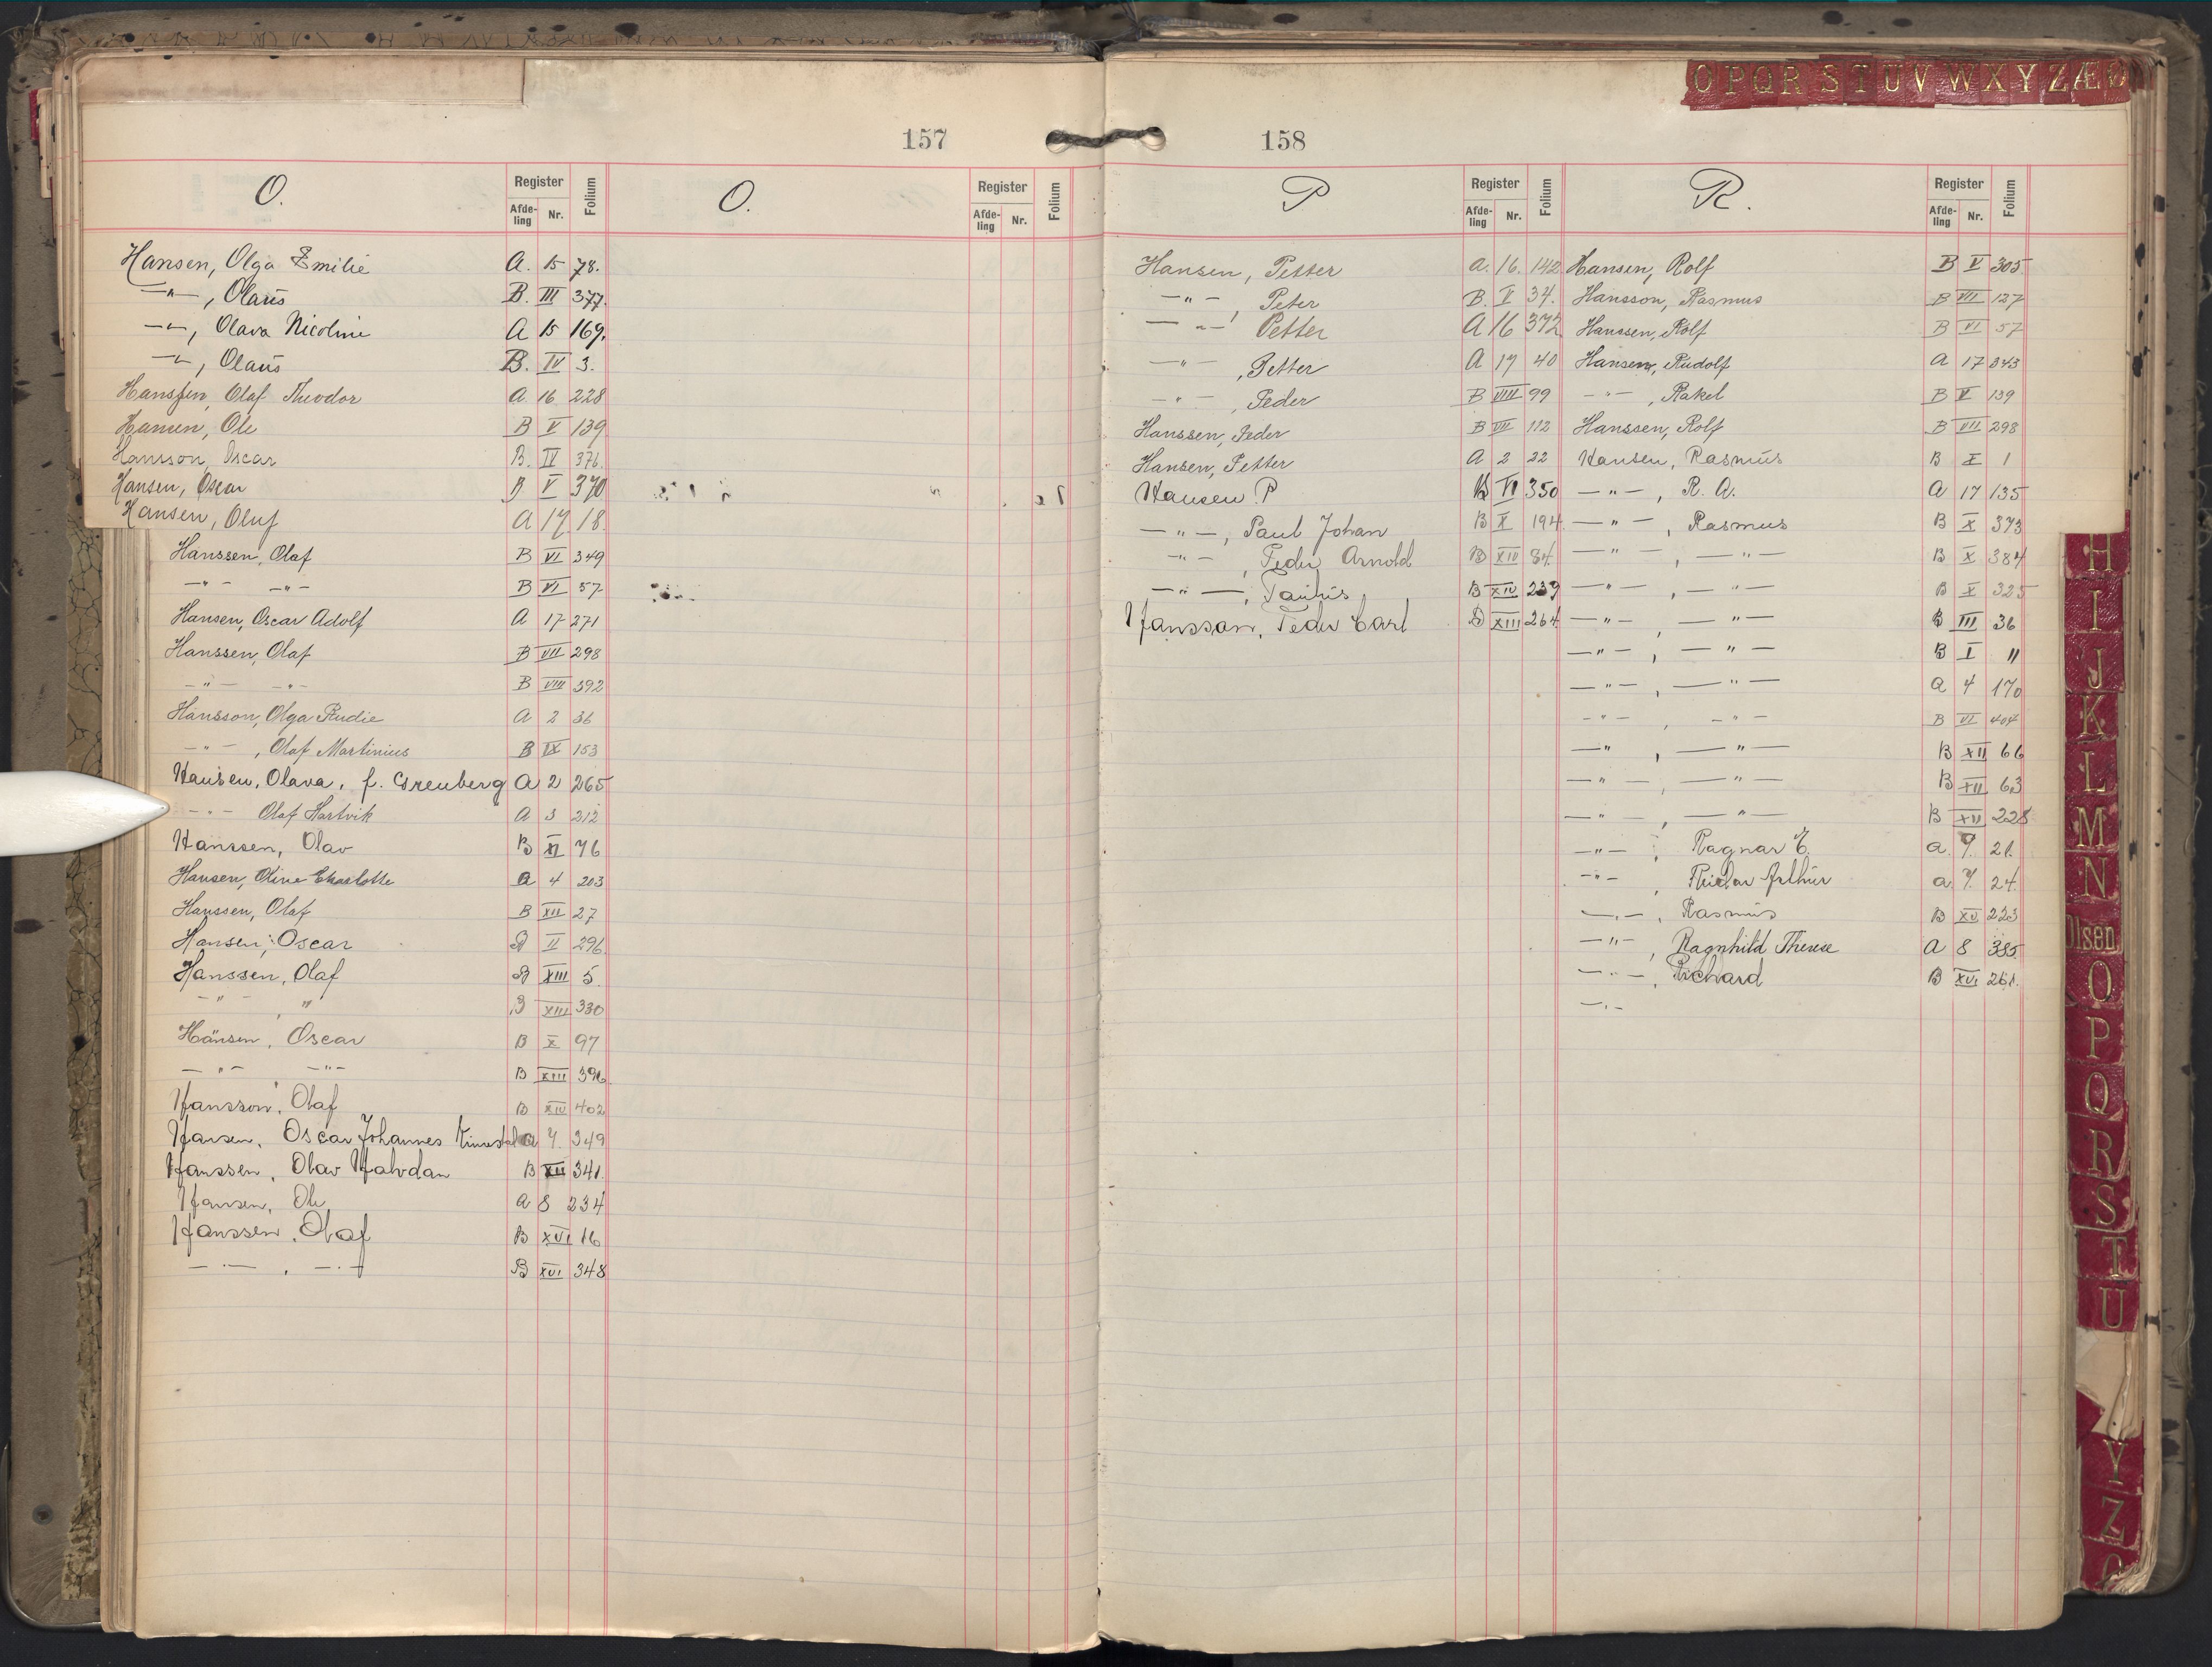 157
O.
Register
Afde-
ling
Nr.
Folium
O.
Register
Afde-
ling
Nr.
Folium
Hansen, Olga Emilie A. 15 78.
—"—, Olaus B. III 377.
—"—, Olava Nicoline A 15 169.
—"—, Olaus B. IV 3.
Hanssen, Olaf Theodor A 16 228
Hansen, Ole B V 139
Hansson, Oscar B. IV 376.
Hansen, Oscar B V 370
Hansen, Oluf A 17 18.
Hanssen, Olaf B VI 349
—"— —"— B VI 57
Hansen, Oscar Adolf A 17 271
Hanssen, Olaf B VII 298
—"— —"— B VIII 392
Hansson, Olga Rudie A 2 36
—"—, Olaf Martinius B IX 153
Hansen, Olava, f. Grenberg A 2 265
—"— Olaf Hartvik A 3 212
Hanssen, Olav B XI 76
Hansen, Oline Charlotte A 4 203
Hanssen, Olaf B XII 27
Hansen, Oscar B II 296
Hanssen, Olaf B XIII 5.
—"— , " B XIII 330
Hansen, Oscar B X 97
—"— —"— B XIII 396
Hansson, Olaf B XIV 402
Hansen, Oscar Johannes a 7. 349
Hanssen, Olav Halvdan B XII 341.
Hansen, Ole a 8 234
Hanssen, Olaf B XVI 16
—"— , —"— B XVI 348
158
P
Register
Afde-
ling
Nr.
Folium
R.
Register
Afde-
ling
Nr.
Folium
Hansen, Petter A. 16. 142
—"—, Peter B. V 34.
—"— Petter A 16 372
—"—, Petter A 17 40
—"—, Peder B VIII 99
Hanssen, Peder B VII 112
Hansen, Petter A 2 22
Hansen P B VI 350
—"—, Paul Johan B X 194.
—"—, Peder Arnold B XIV 84.
—"—, Paulus B XIV 239
Hansson, Peder Carl B XIII 264
Hansen, Rolf B V 305
Hansson, Rasmus B VII 127
Hanssen, Rolf B VI 57
Hansen, Rudolf A 17 343
—"—, Rakel B V 139
Hanssen, Rolf B VII 298
Hansen, Rasmus B X 1
—"—, R. A. A 17 135
—"—, Rasmus B X 373
—"—, —"— B X 384
—"—, —"— B X 325
—"—, —"— B III 36
—"—, —"— B I 11
—"—, —"— a 4 170
—"—, —"— B VI 404
—"—, —"— B XII 66
—"—, —"— B XII 63
—"—, —"— B XII 228
—"—, Ragnar E. a. 7. 21.
—"—, Reidar Arthur a 7. 24.
—"—, Rasmus B XV 223
—"—, Ragnhild Therese A 8 385.
—"—, Richard B XVI 261.
—"—
O P Q R S T U V W X Y Z Æ Ø
H
I
J
K
L
M
N
Olsen
O
P
Q
R
S
T
U
Y
Z